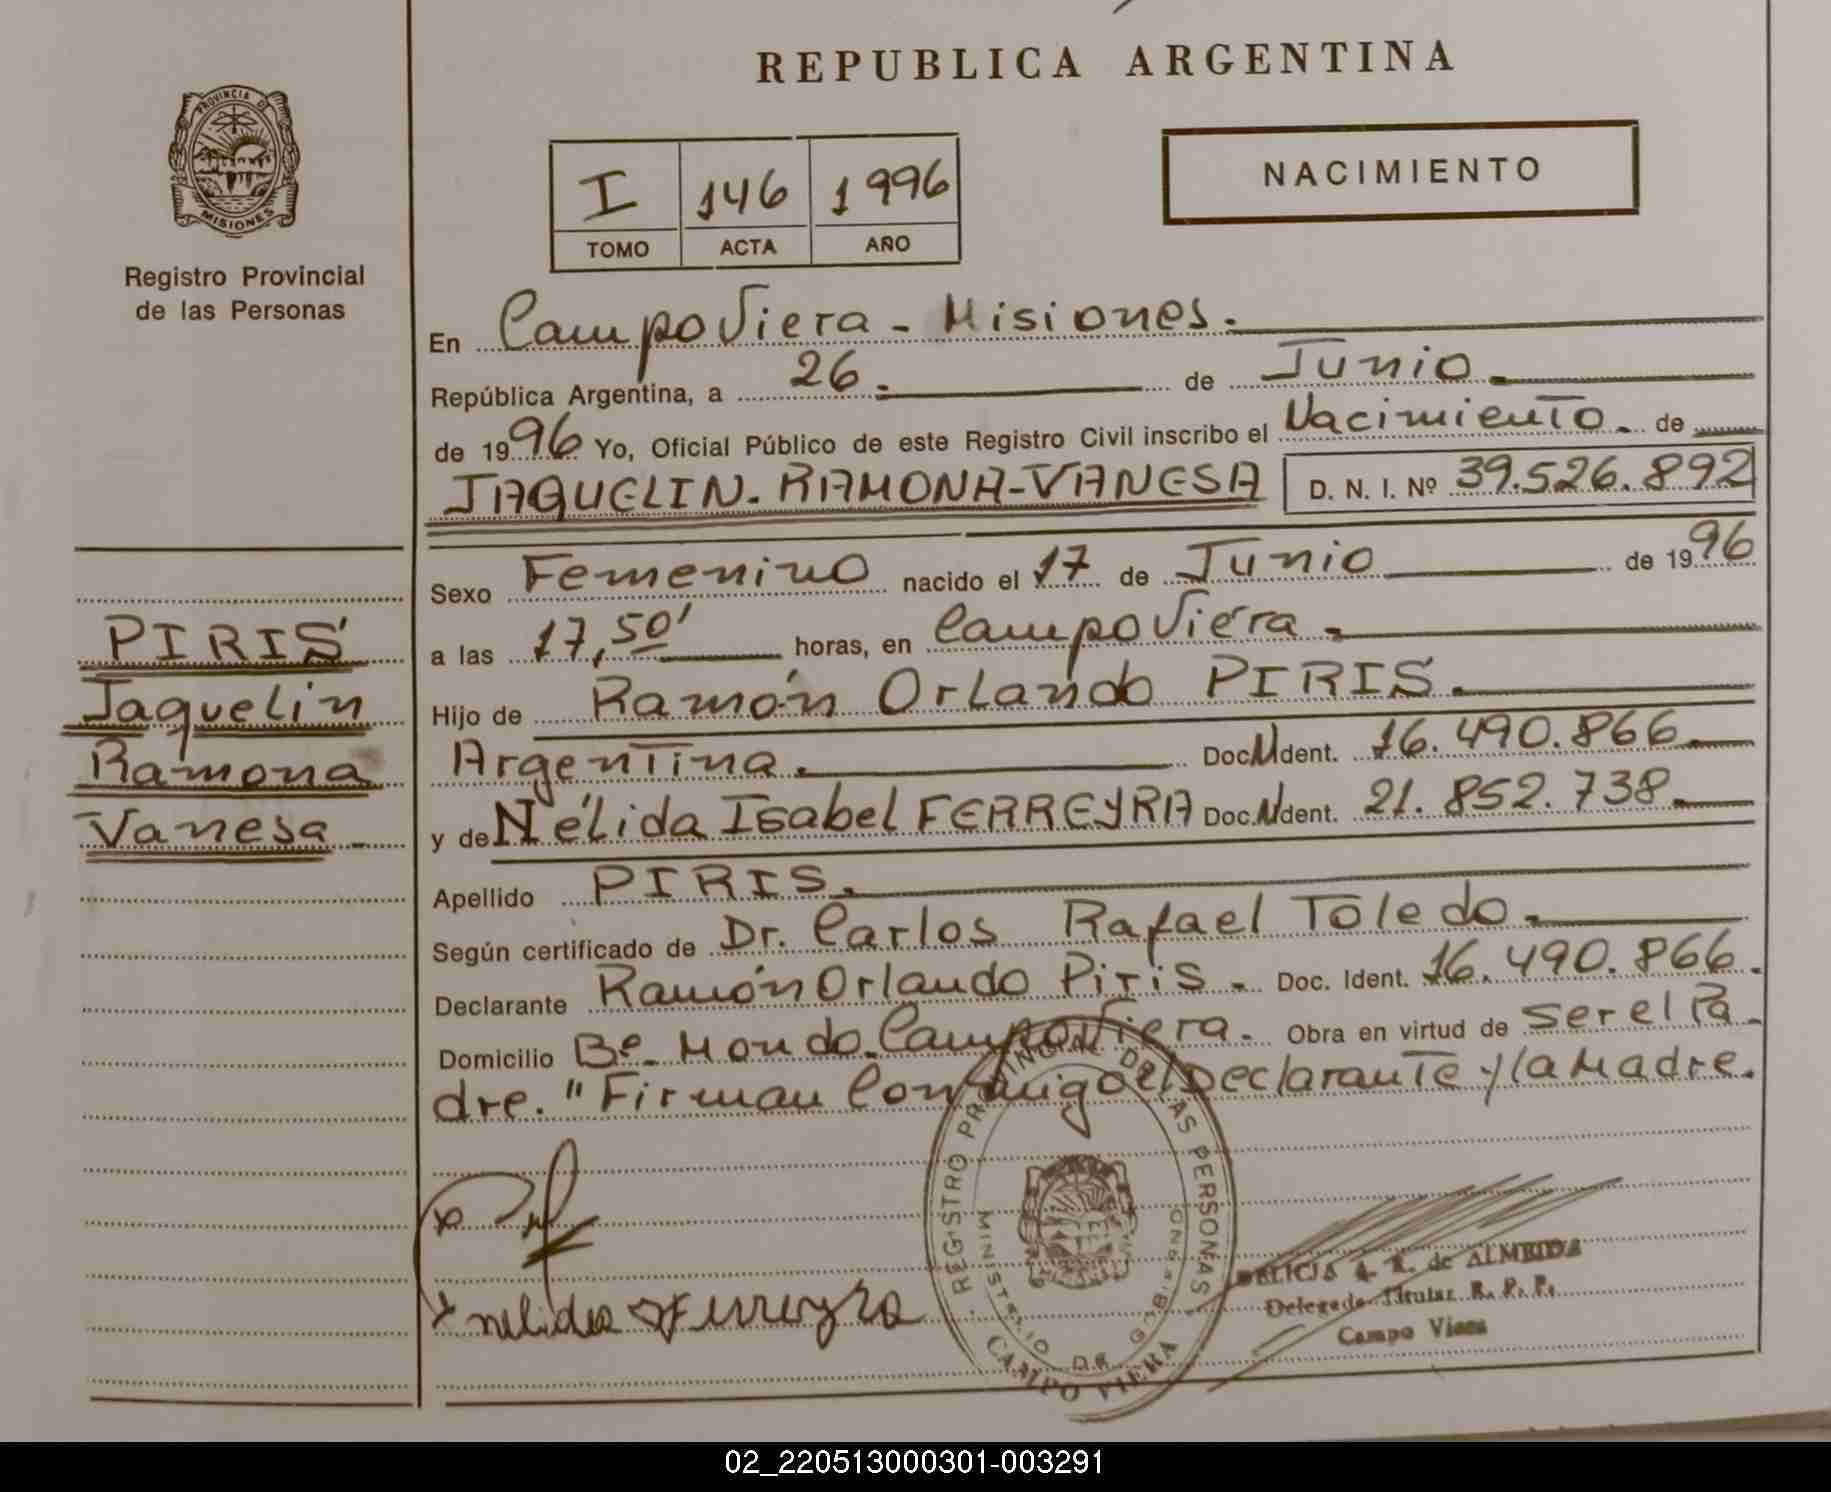 REPUBLICA ARGENTINA
PROVINCIA DE
MISIONES
Registro Provincial
de las Personas
NACIMIENTO
I 146 1996
TOMO ACTA AÑO
En Campo Viera - Misiones.
República Argentina, a 26. de Junio.
de 1996 Yo, Oficial Público de este Registro Civil inscribo el Nacimiento. de
JAQUELIN-RAMONA-VANESA D. N. I. Nº 39.526.892
Sexo Femenino nacido el 17 de Junio de 1996
a las 17,50' horas, en Campo Viera.
Hijo de Ramón Orlando PIRIS.
Argentina. Doc. N Ident. 16.490.866.
y de Nélida Isabel FERREYRA Doc. N Ident. 21.852.738.
Apellido PIRIS.
Según certificado de Dr. Carlos Rafael Toledo.
Declarante Ramón Orlando Piris. Doc. Ident. 16.490.866.
Domicilio Bº. Mondo. Campo Viera. Obra en virtud de ser el Pa-
dre. "Firman Conmigo el Declarante y la Madre.
PIRIS
Jaquelin
Ramona
Vanesa
x nelida Ferreyra
REGISTRO PROVINCIAL DE LAS PERSONAS
MINISTERIO DE
CAMPO VIERA
DELICIA A. R. de ALMEIDA
Delegada Titular R. P. P.
Campo Viera
02_220513000301-003291